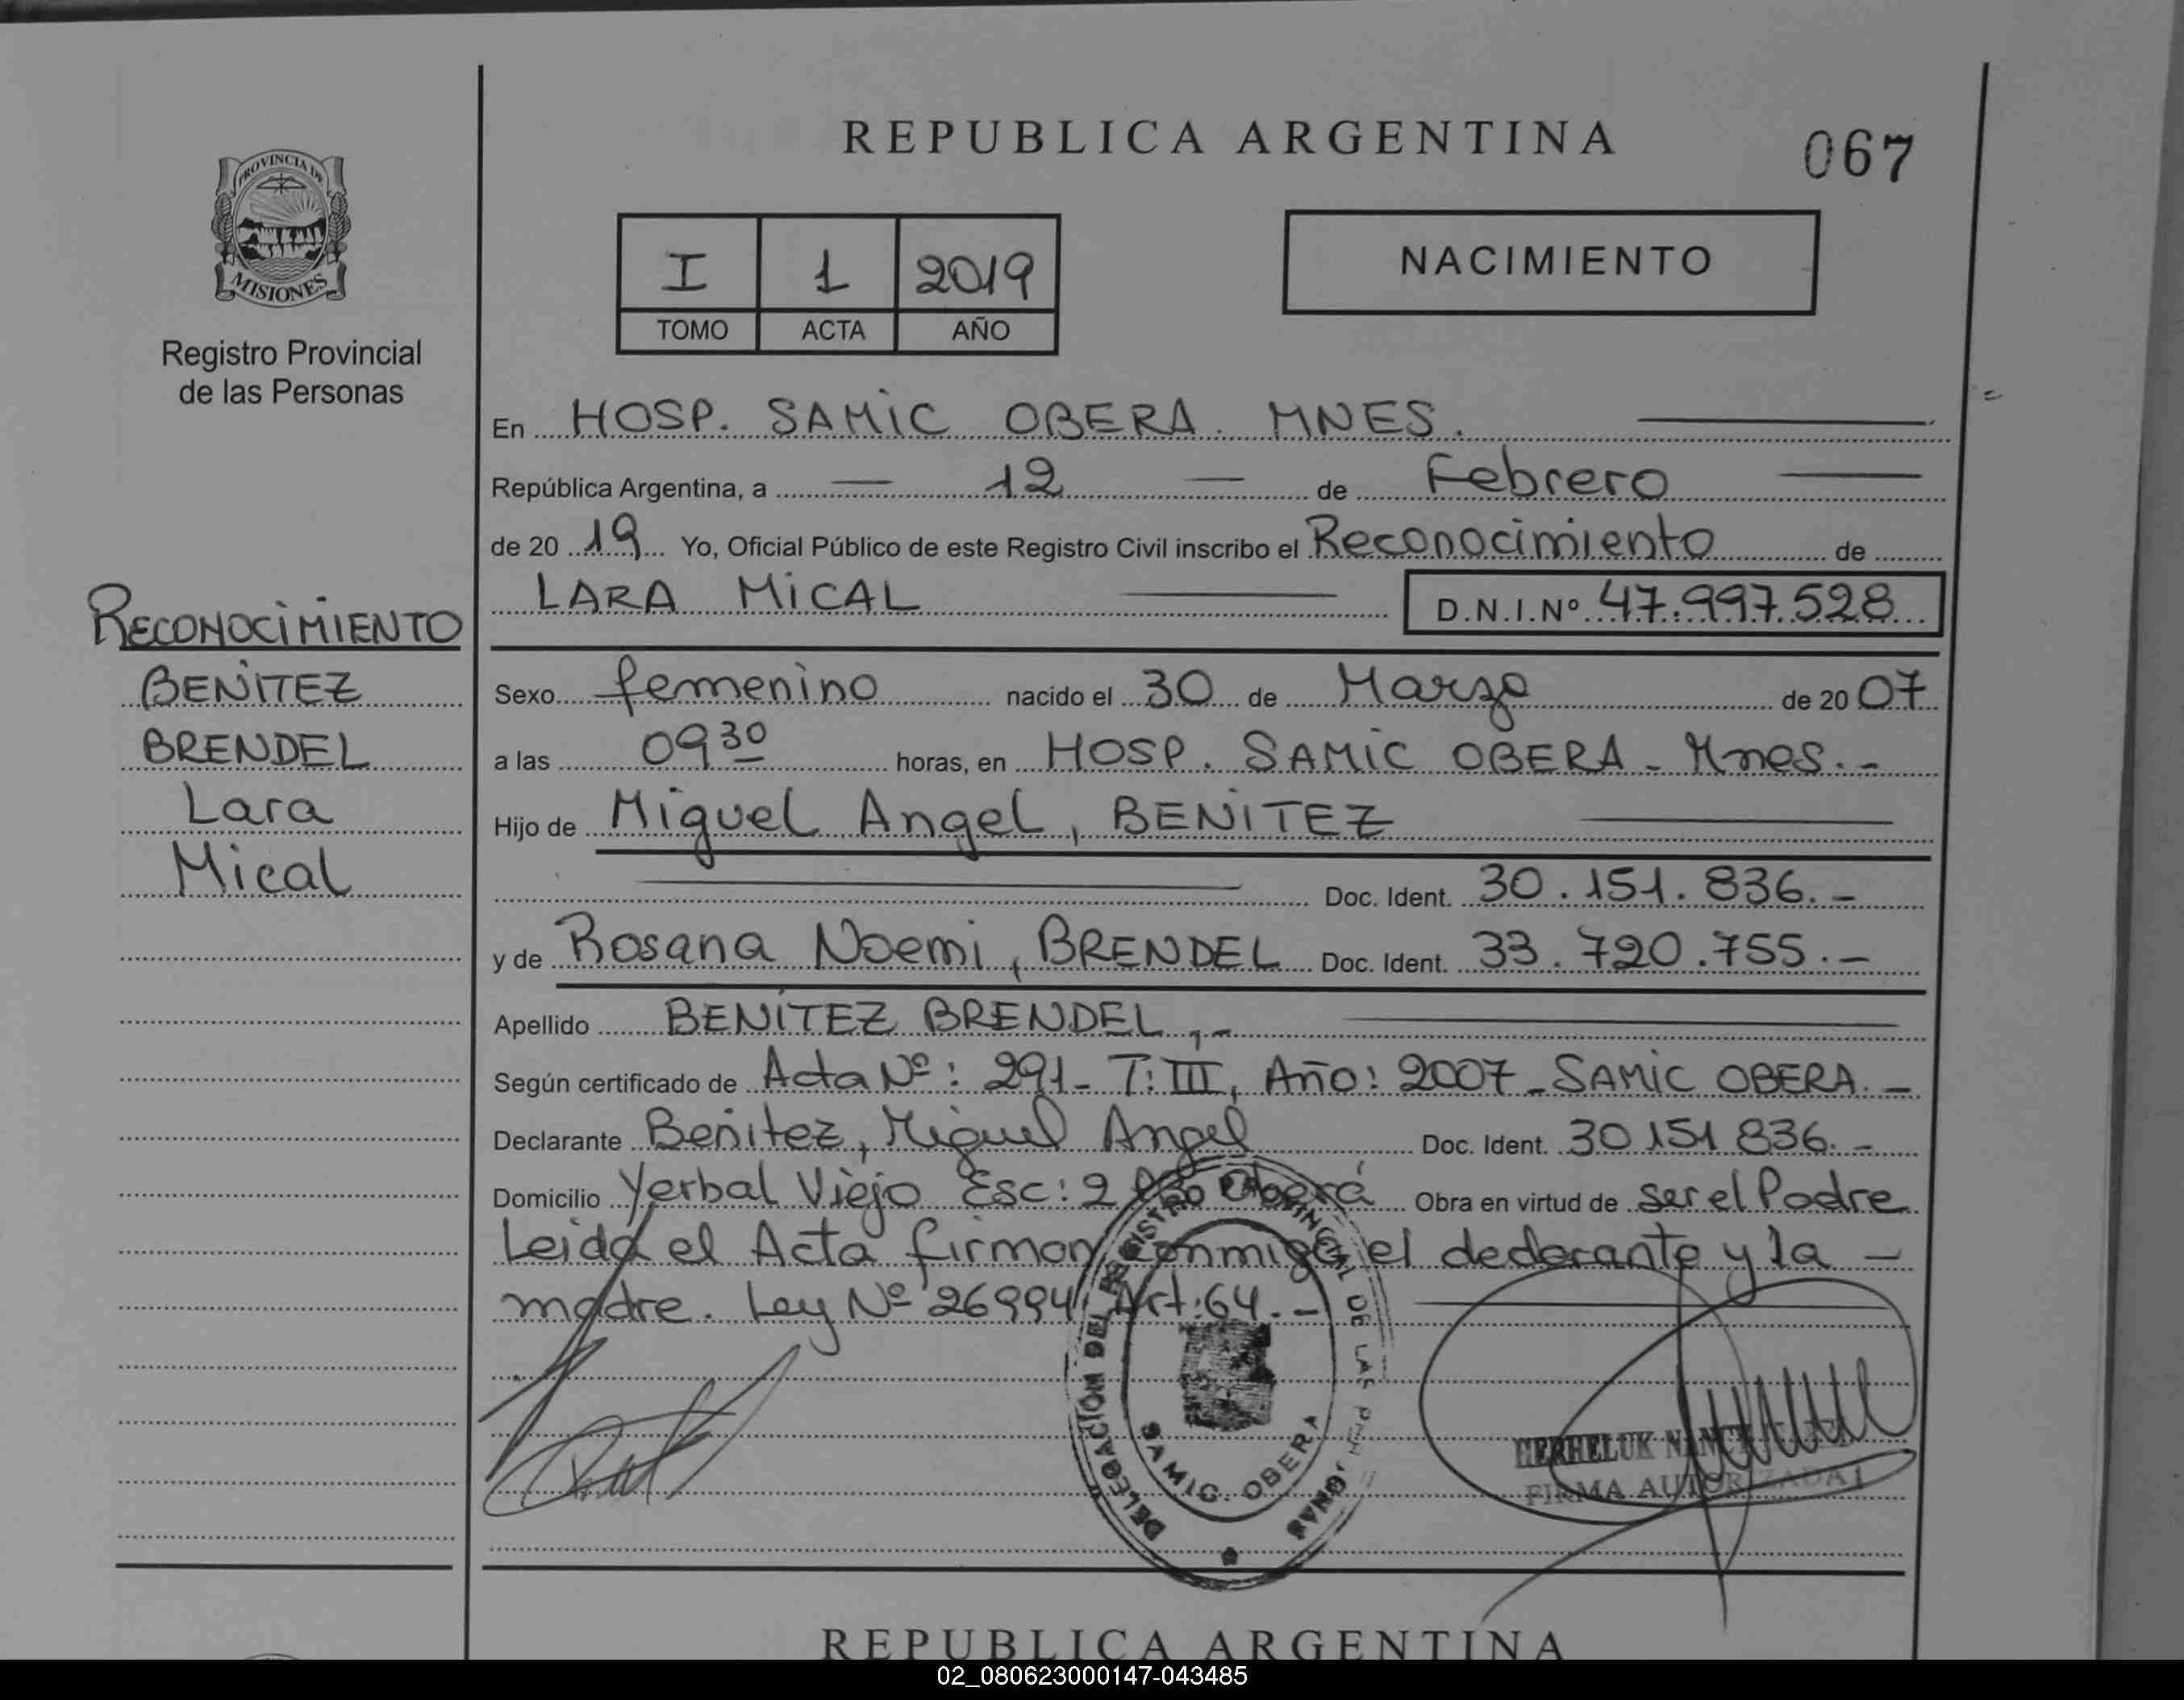 REPUBLICA ARGENTINA
067
PROVINCIA DE
MISIONES
Registro Provincial
de las Personas
I 1 2019
TOMO ACTA AÑO
NACIMIENTO
En HOSP. SAMIC OBERA. MNES.
República Argentina, a — 12 — de Febrero
de 20 19 Yo, Oficial Público de este Registro Civil inscribo el Reconocimiento de
LARA MiCAL D.N.I.Nº 47.997.528
RECONOCIMIENTO
BENITEZ
BRENDEL
Lara
Mical
Sexo femenino nacido el 30 de Marzo de 20 07
a las 09 30 horas, en HOSP. SAMIC OBERA - Mnes. -
Hijo de Miguel Angel, BENITEZ
Doc. Ident. 30.151.836.-
y de Rosana Noemi, BRENDEL Doc. Ident. 33.720.755.-
Apellido BENITEZ BRENDEL,-
Según certificado de Acta Nº: 291- T: III, Año: 2007 - SAMIC OBERA. -
Declarante Benitez, Miguel Angel Doc. Ident. 30 151 836.-
Domicilio Yerbal Viejo Esc: 2 Oberá Obra en virtud de ser el Padre
Leida el Acta firman conmigo el declarante y la -
madre. Ley Nº 26994 Art: 64.-
DELEGACIÓN DEL REGISTRO PROVINCIAL DE LAS PERSONAS
SAMIC OBERA
FIRMA AUTORIZADA
REPUBLICA ARGENTINA
02_080623000147-043485